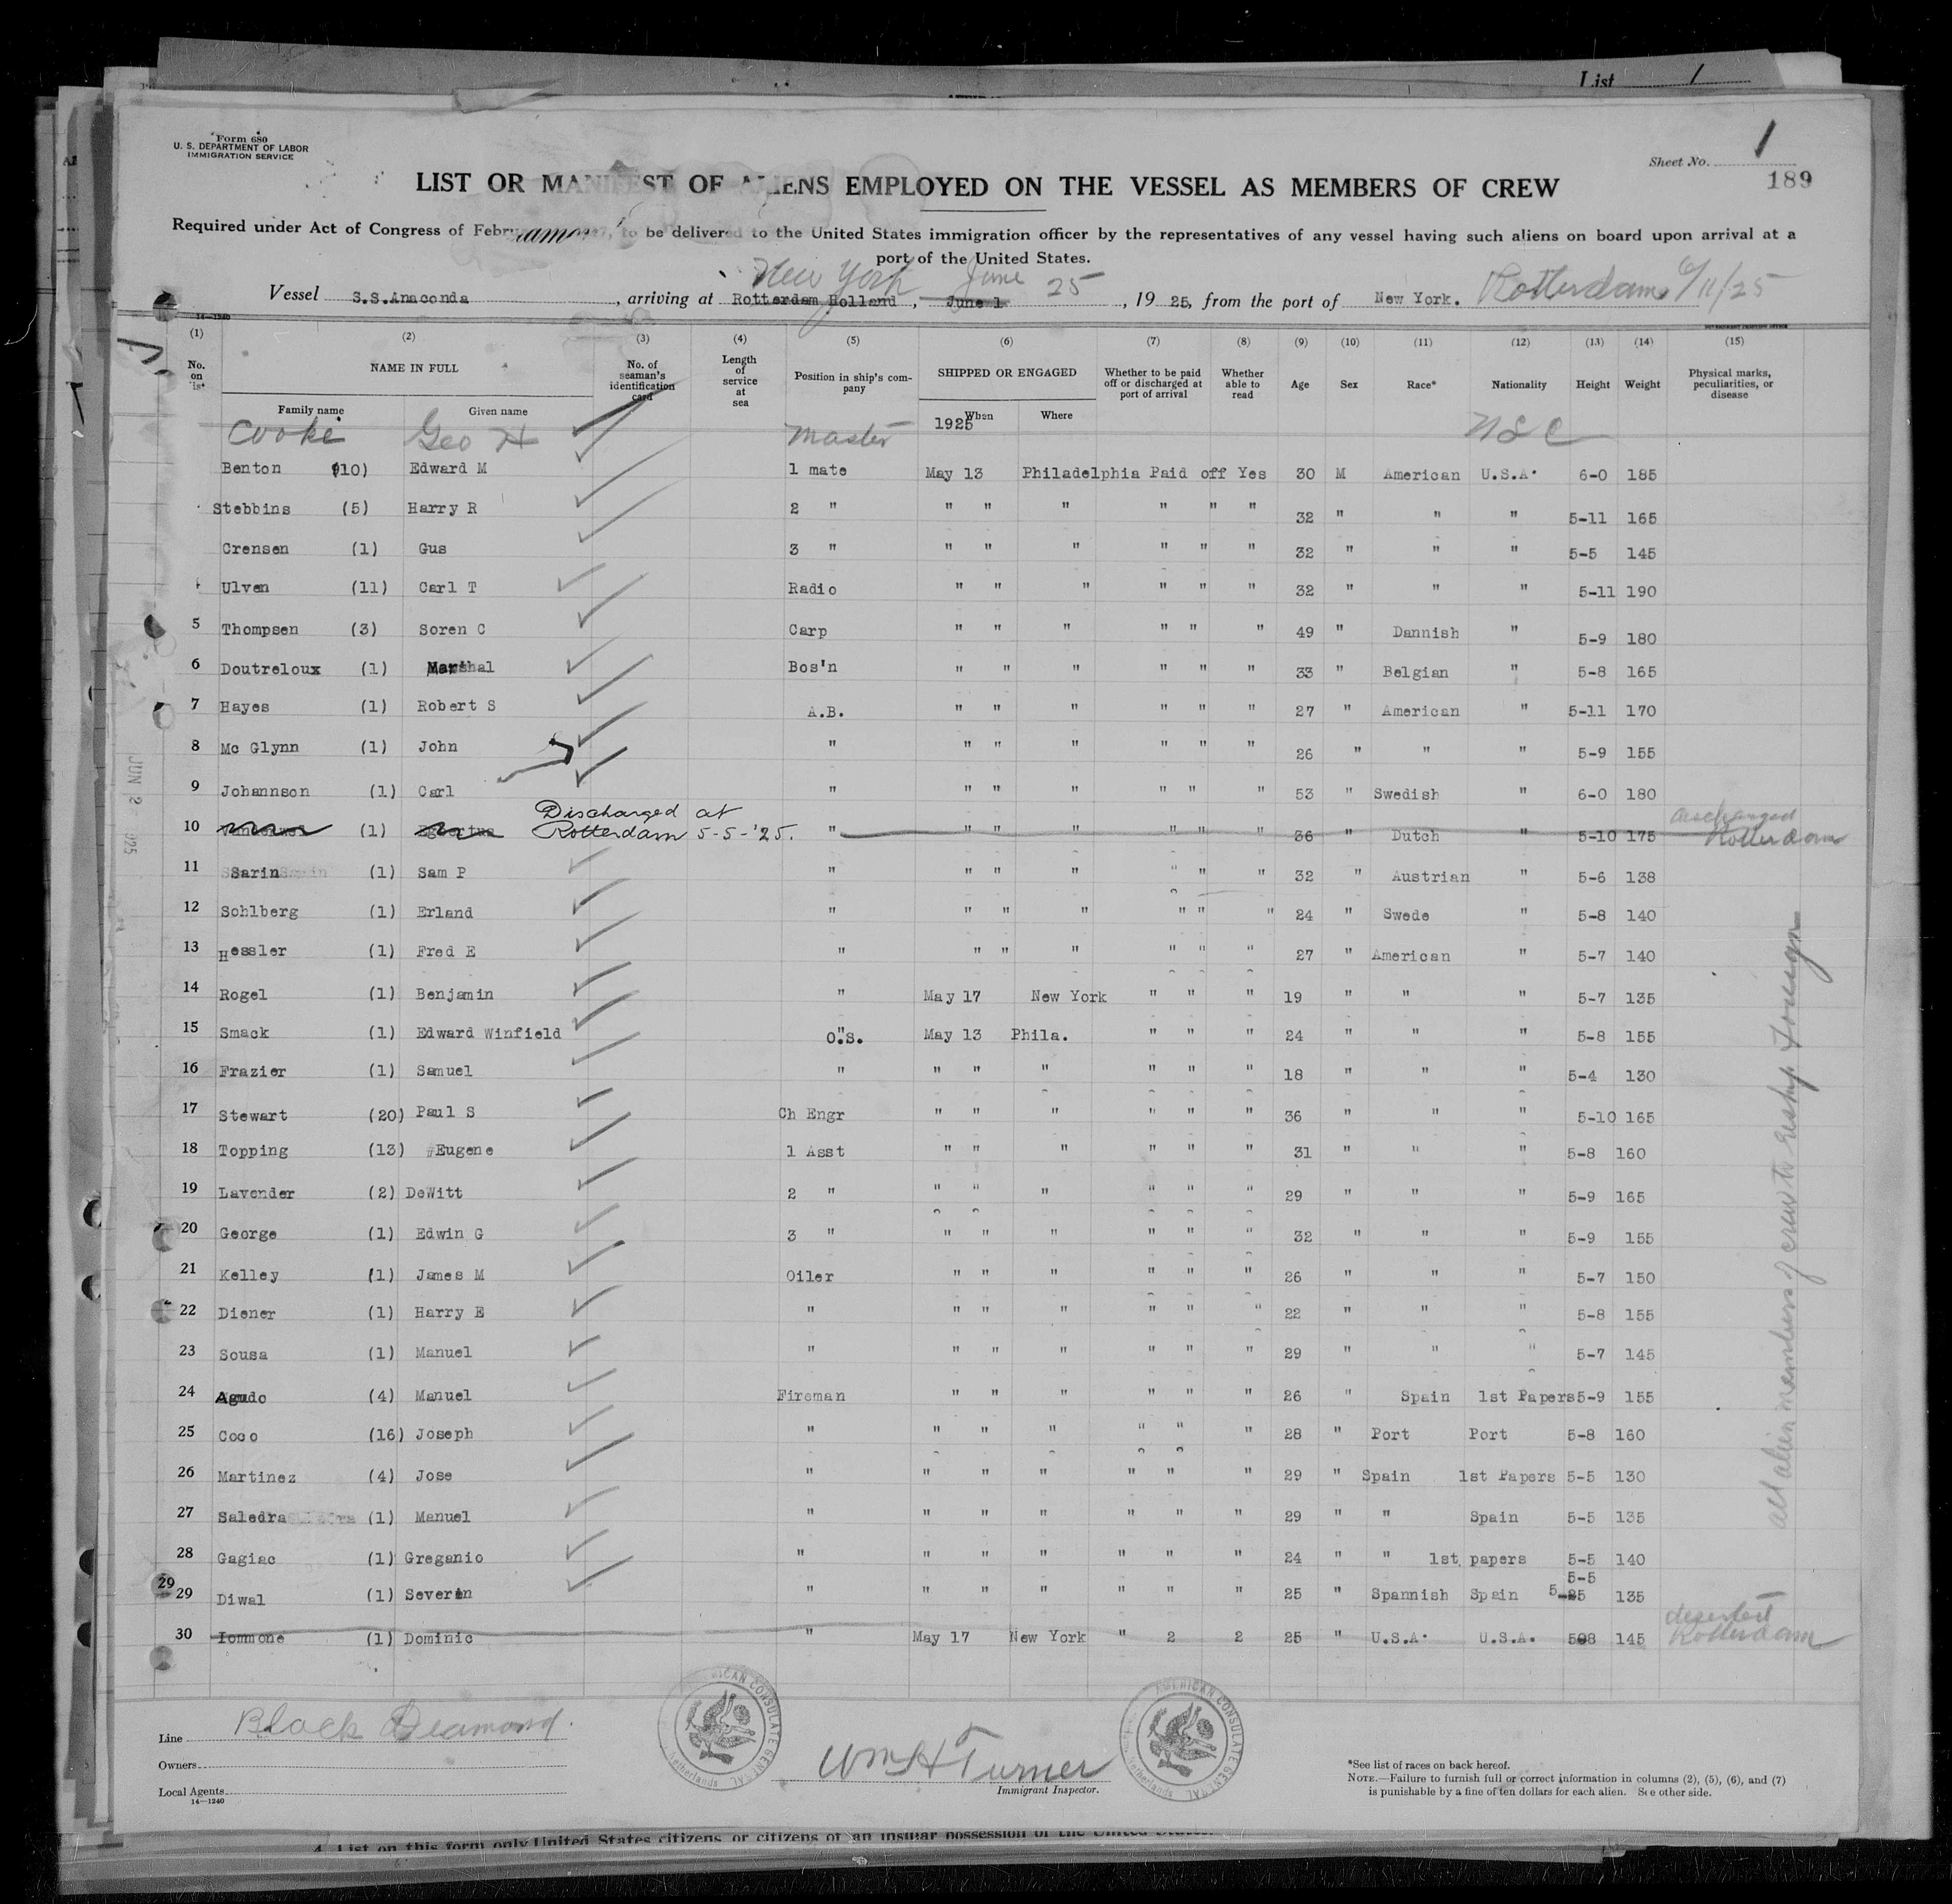 List 1
Form 680
U. S. DEPARTMENT OF LABOR
IMMIGRATION SERVICE
Sheet No. 1
189
LIST OR MANIFEST OF ALIENS EMPLOYED ON THE VESSEL AS MEMBERS OF CREW
Required under Act of Congress of to be delivered to the United States immigration officer by the representatives of any vessel having such aliens on board upon arrival at a
port of the United States.
New York June 25 Rotterdam 6/11/25
Vessel S.S.Anaconda, arriving at Rotterdam Holland, June 1, 1925, from the port of New York.
14—1240
(1) (2) (3) (4) (5) (6) (7) (8) (9) (10) (11) (12) (13) (14) (15)
No. on list NAME IN FULL No. of seaman's identification card Length of service at sea Position in ship's company SHIPPED OR ENGAGED Whether to be paid off or discharged at port of arrival Whether able to read Age Sex Race* Nationality Height Weight Physical marks, peculiarities, or disease
Family name Given name When Where
1925
Cooke Geo H Master USC
Benton (10) Edward M 1 mate May 13 Philadelphia Paid off Yes 30 M American U.S.A. 6-0 185
Stebbins (5) Harry R 2 " " " " " " " 32 " " " 5-11 165
Crensen (1) Gus 3 " " " " " " " 32 " " " 5-5 145
Ulven (11) Carl T Radio " " " " " " 32 " " " 5-11 190
5 Thompsen (3) Soren C Carp " " " " " " 49 " Dannish " 5-9 180
6 Doutreloux (1) Marshal Bos'n " " " " " " 33 " Belgian " 5-8 165
7 Hayes (1) Robert S A.B. " " " " " " 27 " American " 5-11 170
8 Mc Glynn (1) John " " " " " " " 26 " " " 5-9 155
9 Johannson (1) Carl " " " " " " " 53 " Swedish " 6-0 180
Discharged at
10 (1) Rotterdam 5-5-'25. " " " " " " " 36 " Dutch " 5-10 175 discharged Rotterdam
11 Sarin (1) Sam P " " " " " " " 32 " Austrian " 5-6 138
12 Sohlberg (1) Erland " " " " " " " 24 " Swede " 5-8 140
13 Hessler (1) Fred E " " " " " " " 27 " American " 5-7 140
14 Rogel (1) Benjamin " May 17 New York " " " 19 " " " 5-7 135
15 Smack (1) Edward Winfield O.S. May 13 Phila. " " " 24 " " " 5-8 155
16 Frazier (1) Samuel " " " " " " " 18 " " " 5-4 130
17 Stewart (20) Paul S Ch Engr " " " " " " 36 " " " 5-10 165
18 Topping (13) Eugene 1 Asst " " " " " " 31 " " " 5-8 160
19 Lavender (2) DeWitt 2 " " " " " " " 29 " " " 5-9 165
20 George (1) Edwin G 3 " " " " " " " 32 " " " 5-9 155
21 Kelley (1) James M Oiler " " " " " " 26 " " " 5-7 150
22 Diener (1) Harry E " " " " " " " 22 " " " 5-8 155
23 Sousa (1) Manuel " " " " " " " 29 " " " 5-7 145
24 Agudo (4) Manuel Fireman " " " " " " 26 " Spain 1st Papers 5-9 155
25 Coco (16) Joseph " " " " " " " 28 " Port Port 5-8 160
26 Martinez (4) Jose " " " " " " " 29 " Spain 1st Papers 5-5 130
27 Saledra (1) Manuel " " " " " " " 29 " " Spain 5-5 135
28 Gagiac (1) Greganio " " " " " " " 24 " " 1st papers 5-5 140
5-5
29 29 Diwal (1) Severin " " " " " " " 25 " Spannish Spain 135
30 Iommone (1) Dominic " May 17 New York " 2 2 25 " U.S.A. U.S.A. 508 145 deserted Rotterdam
all alien members of crew to reship foreign
Line Black Diamond.
Owners
Local Agents
14—1240
AMERICAN CONSULATE GENERAL Netherlands
Wm H Turner
Immigrant Inspector.
AMERICAN CONSULATE GENERAL Netherlands
*See list of races on back hereof.
NOTE.—Failure to furnish full or correct information in columns (2), (5), (6), and (7)
is punishable by a fine of ten dollars for each alien. See other side.
4. List on this form only United States citizens or citizens of an insular possession of the United States.